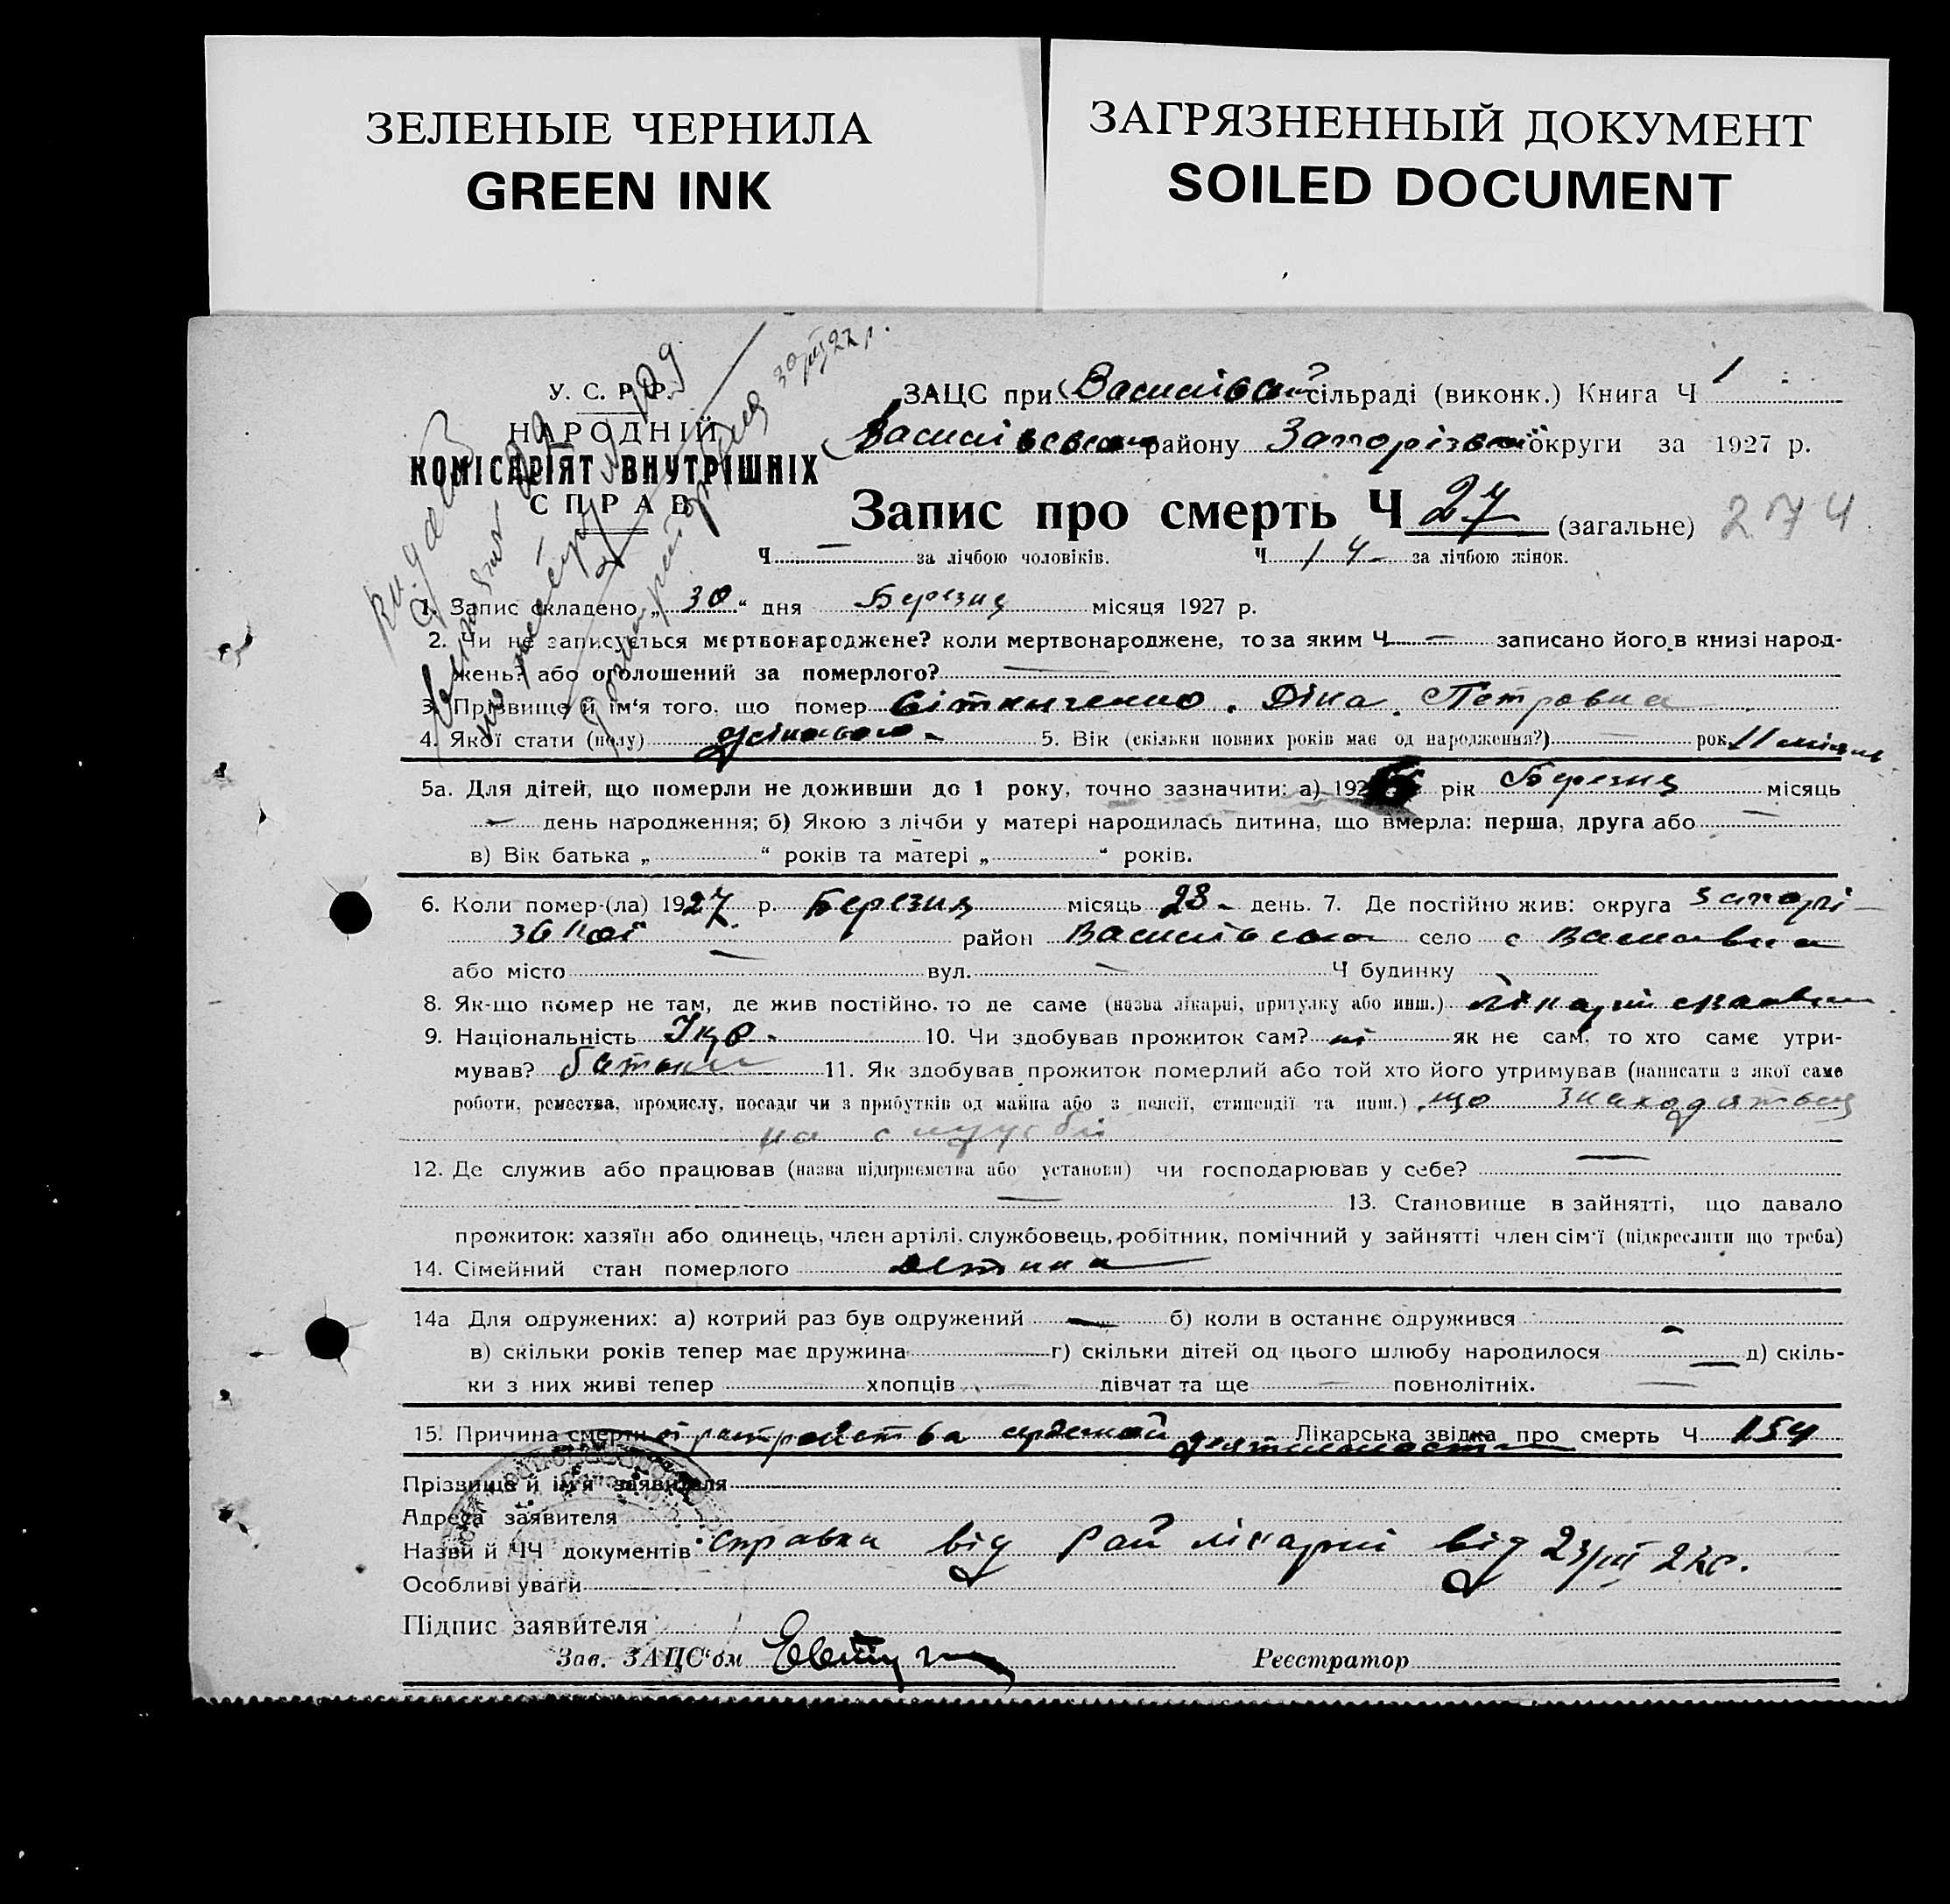 ЗЕЛЕНЫЕ ЧЕРНИЛА
GREEN INK
ЗАГРЯЗНЕННЫЙ ДОКУМЕНТ
SOILED DOCUMENT
У. С. Р. Р.
НАРОДНІЙ
КОМІСАРІЯТ ВНУТРІШНІХ
СПРАВ
30/III 27 р.
ЗАЦС при Василівській сільраді (виконк.) Книга Ч 1
Василівського району Запорізької округи за 1927 р.
Запис про смерть Ч 27 (загальне) 274
Ч — за лічбою чоловіків. Ч 14 за лічбою жінок.
1. Запис складено „30“ дня Березня місяця 1927 р.
2. Чи не записується мертвонароджене? коли мертвонароджене, то за яким Ч — записано його в книзі народ-
жень? або оголошений за померлого? —
3. Прізвище й ім‘я того, що помер Діна Петровна
4. Якої статі (полу) 5. Вік (скільки повних років має од народження?) — рок. 11 місяців
5а. Для дітей, що померли не доживши до 1 року, точно зазначити: а) 1926 рік Березня місяць
— день народження; б) Якою з лічби у матері народилась дитина, що вмерла: перша, друга або —
в) Вік батька „ “ років та матері „ “ років.
6. Коли помер-(ла) 1927 р. Березня місяць 23 день. 7. Де постійно жив: округа Запорі-
зької район Василівського село с Василівка
або місто — вул. — Ч будинку
8. Як-що помер не там, де жив постійно, то де саме (назва лікарні, притулку або инш.) лікарні
9. Національність Укр. 10. Чи здобував прожиток сам? ні як не сам, то хто саме утри-
мував? батьки 11. Як здобував прожиток померлий або той хто його утримував (написати з якої саме
роботи, ремества, промислу, посади чи з прибутків од майна або з пенсії, стипендії та инш.) що знаходяться
на службі
12. Де служив або працював (назва підприємства або установи) чи господарював у себе? —
— 13. Становище в зайнятті, що давало
прожиток: хазяїн або одинець, член артілі, службовець, робітник, помічний у зайнятті член сім‘ї (підкреслити що треба)
14. Сімейний стан померлого детина
14а Для одружених: а) котрий раз був одружений — б) коли в останнє одружився —
в) скільки років тепер має дружина — г) скільки дітей од цього шлюбу народилося — д) скіль-
ки з них живі тепер хлопців дівчат та ще — повнолітніх. —
15. Причина смерти растройства сердечной деятельности Лікарська звідка про смерть Ч 154
Прізвище й ім‘я заявителя
Адреса заявителя
Назви й ЧЧ документів справка від Рай лікарні від 23/III 27р.
Особливі уваги
Підпис заявителя
Зав. ЗАЦС‘ом Реєстратор